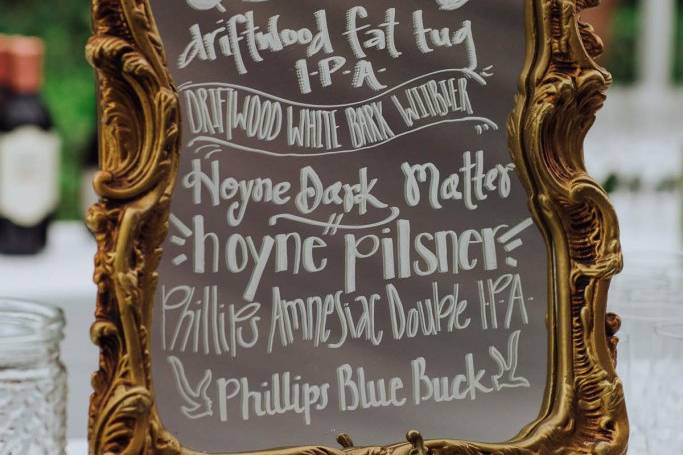 driftwood fat tug
I.P.A.
DRIFTWOOD WHITE BARK WITBIER
Hoyne Dark Matter
hoyne pilsner
Phillips Amnesiac Double I.P.A.
Phillips Blue Buck